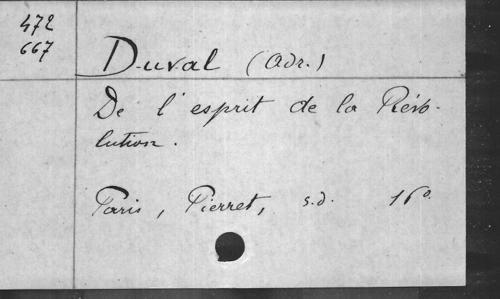 472
667
Duval (Adr.)
De l'esprit de la Révo-
lution.
Paris, Pierret, s.d. 16°.